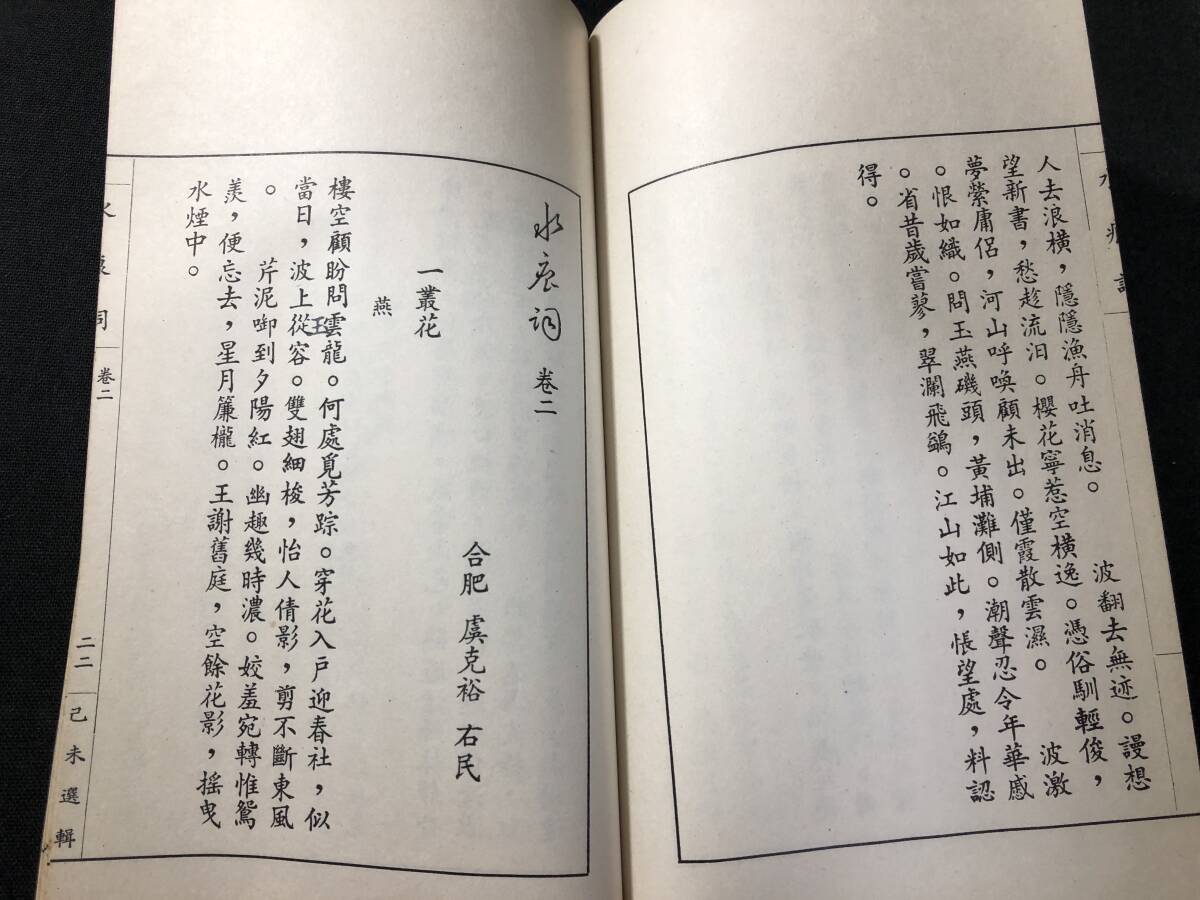 人去浪橫，隱隱漁舟吐消息。　　波翻去無迹。謾想
望新書，愁趁流汨。櫻花寧惹空橫逸。憑俗馴輕俊，
夢縈庸侶，河山呼喚顧未出。僅霞散雲濕。　　波激
。恨如織。問玉燕磯頭，黃埔灘側。潮聲忍令年華慼
。省昔歲嘗蓼，翠瀾飛鷁。江山如此，悵望處，料認
得。
水痕詞 卷二
合肥 虞克裕 右民
一叢花
燕
樓空顧盼問雲龍。何處覓芳踪。穿花入戶迎春社，似
當日，波上從容。雙翅細梭，怡人倩影，剪不斷東風
。　　芹泥啣到夕陽紅。幽趣幾時濃。姣羞宛轉惟鴛
羨，便忘去，星月簾櫳。王謝舊庭，空餘花影，搖曳
水煙中。
水痕詞
卷二
二二
己未選輯